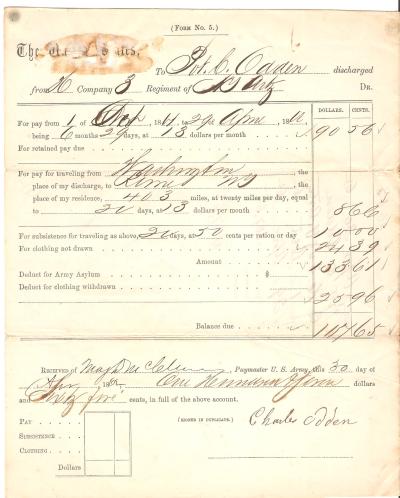 (FORM No. 5.)
The
To Pvt. C. Odden discharged
from Company 3 Regiment of DR.
DOLLARS. CENTS.
For pay from 1 of 29 186
being 6 months 29 days, at 13 dollars per month 90 56
For retained pay due
For pay for traveling from Washington, the
place of my discharge, to NY, the
place of my residence, 403 miles, at twenty miles per day, equal
to 20 days, at 13 dollars per month 8 66
For subsistence for traveling as above, 20 days, at 50 cents per ration or day 10 00
For clothing not drawn 24 39
Amount 133 61
Deduct for Army Asylum $
Deduct for clothing withdrawn
25 96
Balance due 107 65
RECEIVED of Paymaster U. S. Army, this 30 day of
186 , One Hundred & Seven dollars
and Sixty five cents, in full of the above account.
PAY
(SIGNED IN DUPLICATE.)
Charles Odden
SUBSISTENCE
CLOTHING
Dollars